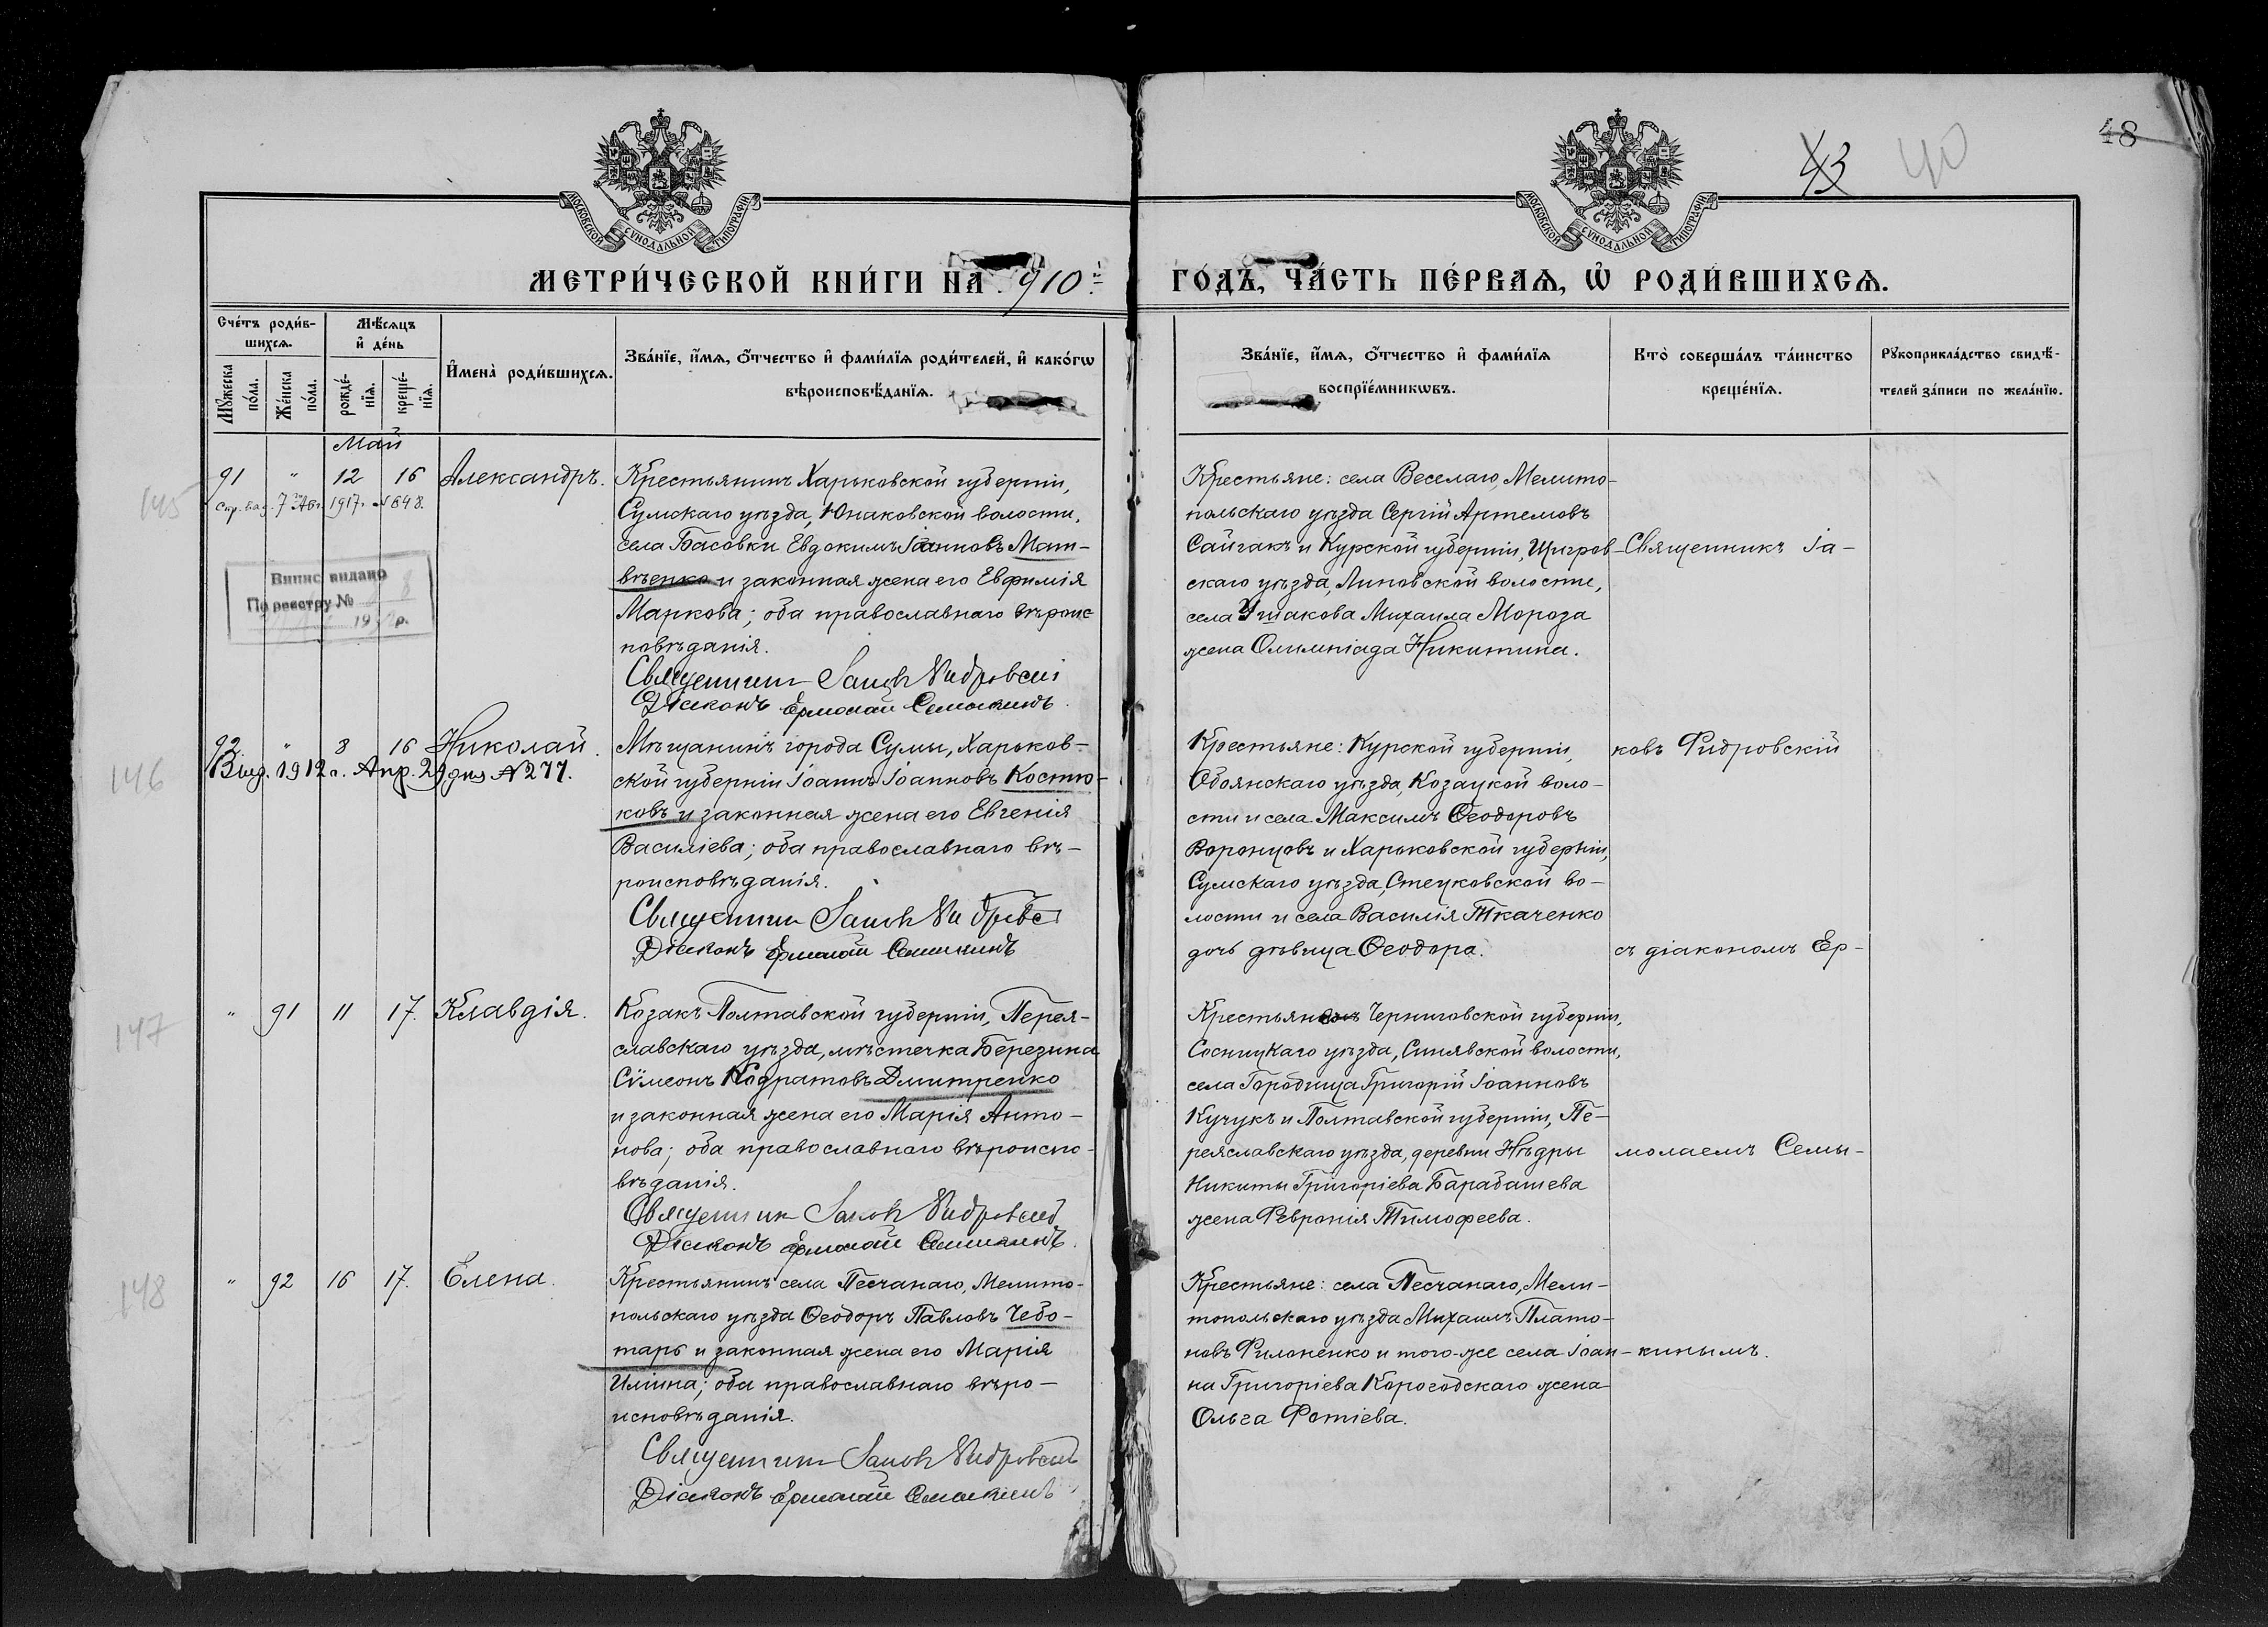 43 40 48
МОСКОВСКОЙ СѴНОДАЛЬНОЙ ТИПОГРАФІИ
МОСКОВСКОЙ СѴНОДАЛЬНОЙ ТИПОГРАФІИ
МЕТРИ́ЧЕСКОЙ КНИ́ГИ НА 1910й
ГО́ДЪ, ЧА́СТЬ ПЕ́РВАѦ, Ѡ҆ РОДИ́ВШИХСѦ.
Сче́тъ роди́в-
шихсѧ.
Мꙋ́жеска по́ла.
Же́нска по́ла.
Мѣ́сѧцъ
и҆ де́нь
рожде́-нїѧ.
креще́-нїѧ.
И҆мена̀ роди́вшихсѧ.
Зва́нїе, и҆́мѧ, ѻ҆́тчество и҆ фами́лїѧ роди́телей, и҆ како́гѡ
вѣроисповѣ́данїѧ.
Зва́нїе, и҆́мѧ, ѻ҆́тчество и҆ фами́лїѧ
воспрїе́мникѡвъ.
Кто̀ соверша́лъ та́инство
креще́нїѧ.
Рꙋкоприкла́дство свидѣ́-
телей за́писи по жела́нїю.
Май
145
91 " 12 16 Александръ.
Спр. выд. 7го Авг. 1917г. №648.
Випис видано
По реєстру № 8
19 р.
Крестьянинъ Харьковской губерніи,
Сумскаго уѣзда, Юнаковской волости,
села Басовки Евдокимъ Іоанновъ Мат-
вѣенко и законная жена его Евфимія
Маркова; оба православнаго вѣроис
повѣданія.
Священникъ Іаковъ Фидровскій
Діаконъ Ермолай Семыкинъ.
Крестьяне: села Веселаго, Мелито-
польскаго уѣзда Сергій Артемовъ
Сайгакъ и Курской губерніи, Щигров-
скаго уѣзда, Липовской волости,
села Ушакова Михаила Мороза
жена Олимпіада Никитина.
Священникъ Іа-
146
92 " 8 16 Николай.
Выд. 1912 г. Апр. 29 дня №277.
Мѣщанинъ города Сумы, Харьков-
ской губерніи Іоаннъ Іоанновъ Костю-
ковъ и законная жена его Евгенія
Василіева; оба православнаго вѣ-
роисповѣданія.
Священникъ Іаковъ Фидровскій
Діаконъ Ермолай Семыкинъ
Крестьяне: Курской губерніи,
Обоянскаго уѣзда, Козацкой воло-
сти и села Максимъ Ѳеодоровъ
Воронцовъ и Харьковской губерніи,
Сумскаго уѣзда, Стецковской во-
лости и села Василія Ткаченко
дочь дѣвица Ѳеодора.
ковъ Фидровскій
съ діакономъ Ер-
147
" 91 11 17. Клавдія.
Козакъ Полтавской губерніи, Перея-
славскаго уѣзда, мѣстечка Березина
Сѵмеонъ Кодратовъ Дмитренко
и законная жена его Марія Анто-
нова; оба православнаго вѣроиспо-
вѣданія.
Священникъ Іаковъ Фидровскій
Діаконъ Ермолай Семыкинъ.
Черниговской губерніи,
Сосницкаго уѣзда, Синявской волости,
села Городища Григорій Іоанновъ
Кучукъ и Полтавской губерніи, Пе-
реяславскаго уѣзда, деревни Нѣдры
Никиты Григоріева Барабашева
жена Февронія Тимофеева.
молаемъ Семы-
148
" 92 16 17. Елена.
Крестьянинъ села Песчанаго, Мелито-
польскаго уѣзда Ѳеодоръ Павловъ Чебо-
тарь и законная жена его Марія
Иліина; оба православнаго вѣро-
исповѣданія.
Священникъ Іаковъ Фидровскій
Діаконъ Ермолай Семыкинъ
Крестьяне: села Песчанаго, Мели-
топольскаго уѣзда Михаилъ Плато-
новъ Филоненко и того-же села Іоан-
на Григоріева Корогодскаго жена
Ольга Фотіева.
кинымъ.